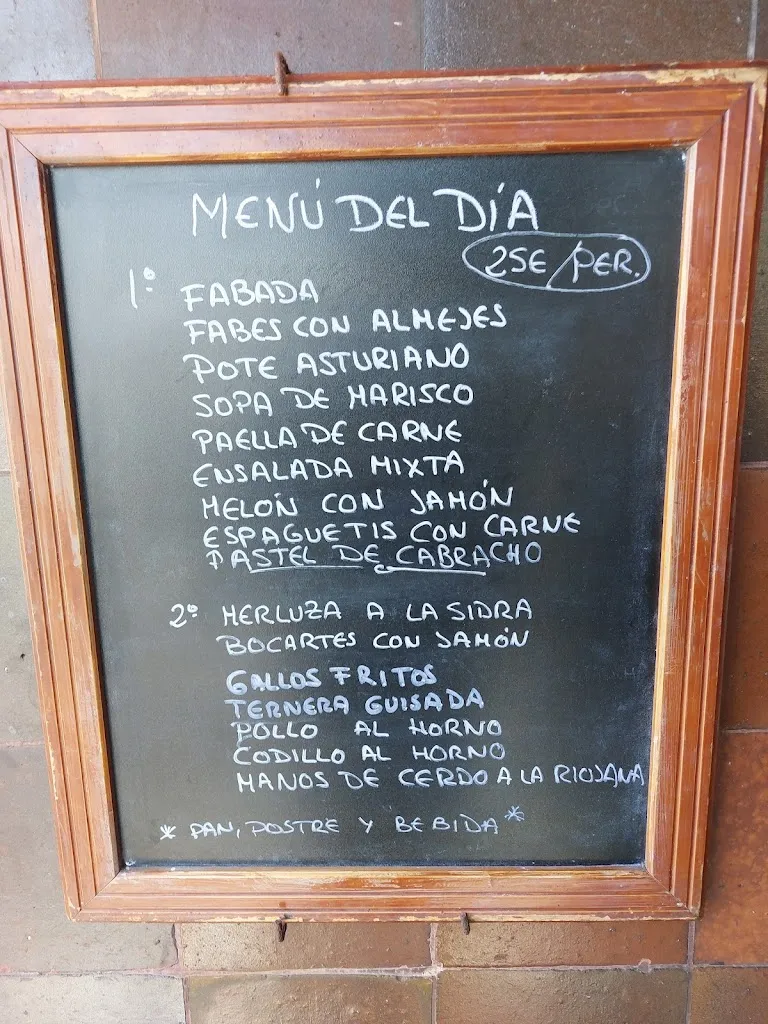 MENÚ DEL DÍA
25€/PER.
1º FABADA
FABES CON ALMEJES
POTE ASTURIANO
SOPA DE MARISCO
PAELLA DE CARNE
ENSALADA MIXTA
MELÓN CON JAMÓN
ESPAGUETIS CON CARNE
PASTEL DE CABRACHO
2º MERLUZA A LA SIDRA
BOCARTES CON JAMÓN
GALLOS FRITOS
TERNERA GUISADA
POLLO AL HORNO
CODILLO AL HORNO
MANOS DE CERDO A LA RIOJANA
* PAN, POSTRE Y BEBIDA *